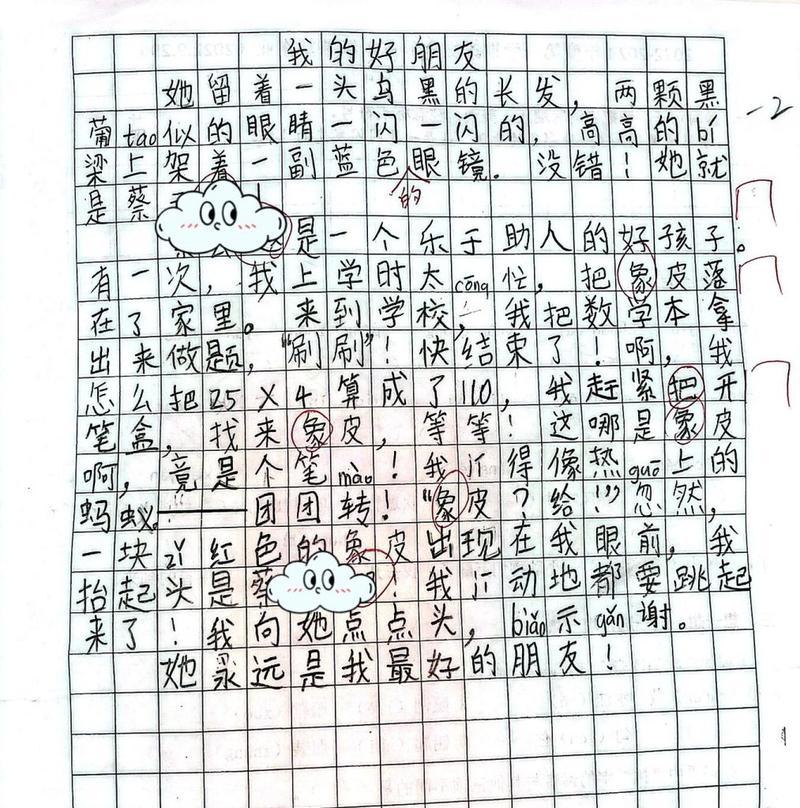 我的好朋友
她留着一头乌黑的长发，两颗黑
葡tao似的眼睛一闪一闪的，高高的bí
梁上架着一副蓝色眼镜．没错！她就
的
是蔡
是一个乐于助人的好孩子。
有一次，我上学时太cōng忙，把象皮落
在了家里。来到学校，我把数学本拿
出来做题，“刷刷”！快结束了！啊，我
怎么把25×4算成了110，我赶紧把开
笔盒，找来象皮，等等！这哪是象皮
啊，竟是个笔mào！我得像热guō上的
蚂蚁。——团团转！“象皮？给！”忽然，
一块zǐ红色的象皮出现在我眼前，我
抬起头是蔡！我动地都要跳起
来了！我向她点点头，biǎo示gǎn谢。
她永远是我最好的朋友！
-2